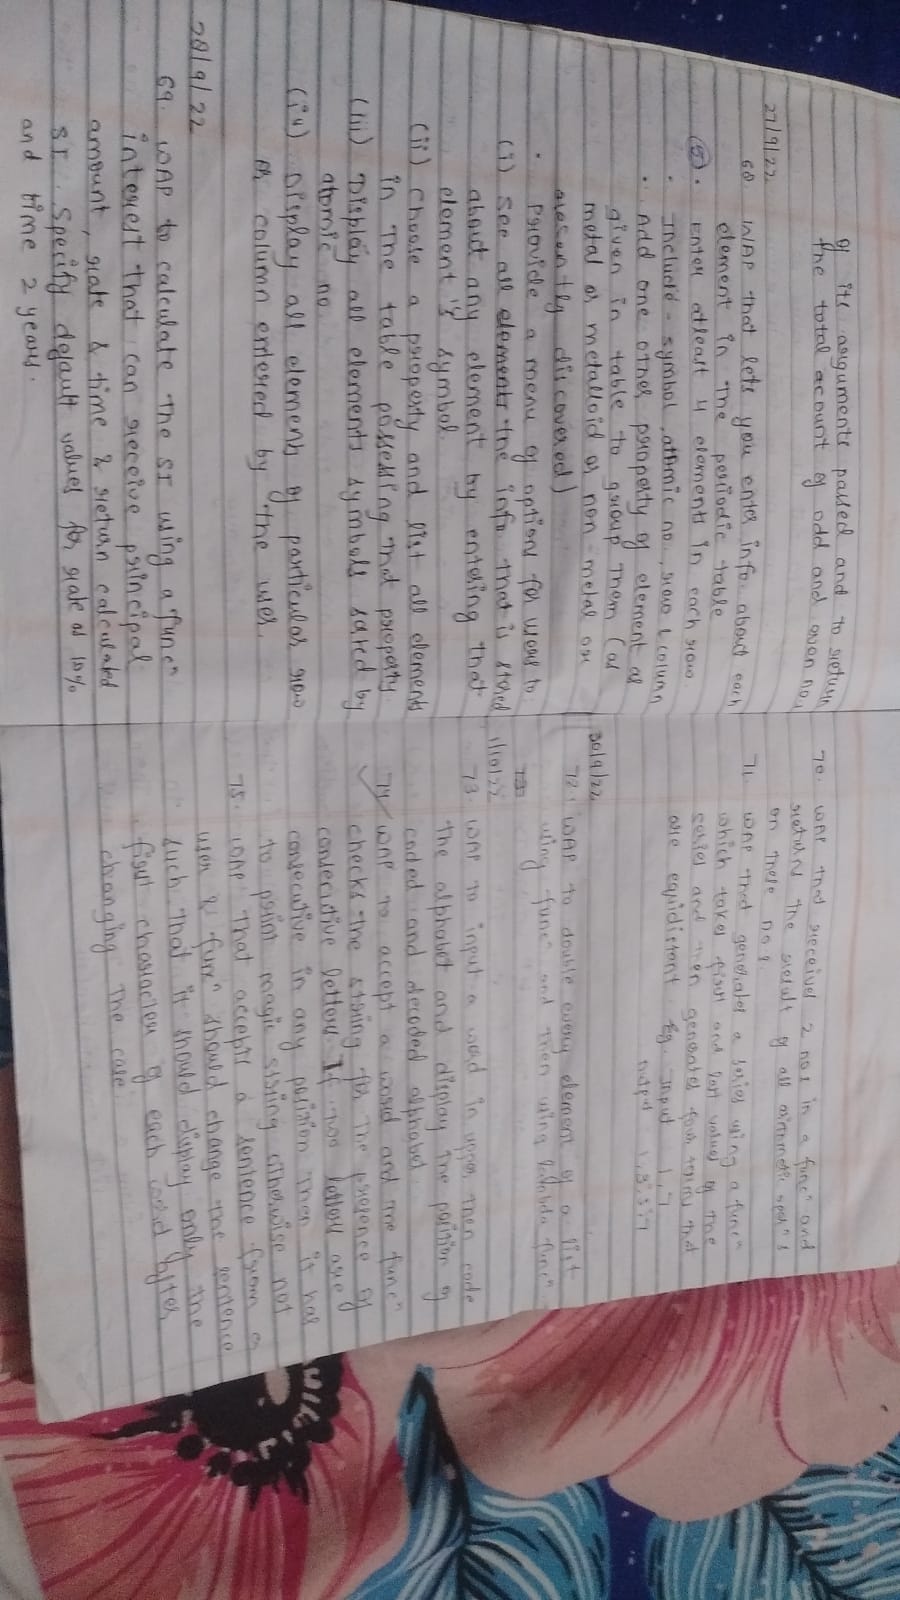 of its arguments passed and to return
the total account of odd and even no.
27/9/22
68 WAP that lets you enter info. about each
element in the periodic table
(5) . Enter atleast 4 elements in each row.
. Include - symbol, atomic no., row & column
. Add one other property of element as
given in table to group them (as
metal or metalloid or non-metal or
discovered)
. Provide a menu of options for user to:
(i) See all elements the info. that is stored
about any element by entering that
element's symbol.
(ii) Choose a property and list all elements
in the table possessing that property.
(iii) Display all elements symbols sorted by
atomic no.
(iv) Display all elements of particular row
or column entered by the user.
28/9/22
69. WAP to calculate the SI using a funcⁿ
interest that can receive principal
amount, rate & time & return calculated
SI. Specify default values for rate as 10%
and time 2 years.
70. WAP that receives 2 nos in a funcⁿ and
returns the result of all arithmetic
on these nos.
71. WAP that generates a series using a funcⁿ
which takes first and last values of the
series and then generates four terms that
are equidistant eg. Input 1, 7
output 1, 3, 5, 7
30/9/22
72. WAP to double every element of a list
using funcⁿ and then using lambda funcⁿ.
1/10/22
73. WAP to input a word in upper, then code
the alphabet and display the position of
coded and decoded alphabet.
74 WAP to accept a word and the funcⁿ
checks the string for the presence of
consecutive letters. If two letters are
consecutive in any position then it has
to print magic string otherwise not
75. WAP that accepts a sentence from
user & funcⁿ should change the sentence
such that it should display only the
first character of each word after
changing the case.